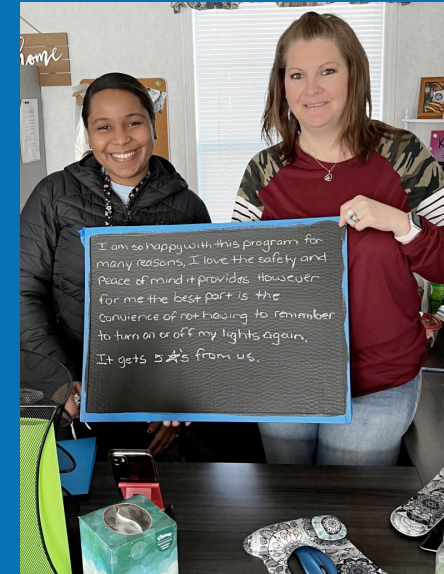 home
I am so happy with this program for
many reasons, I love the safety and
Peace of mind it provides However
for me the best part is the
convience of not having to remember
to turn on or off my lights again.
It gets 5 ☆'s from us.
Kleenex